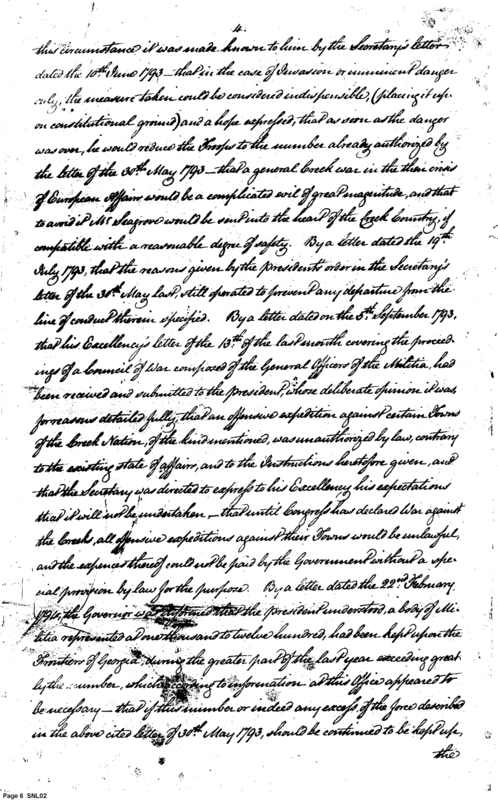 4.
this circumstance it was made known to him by the Secretary's letter
dated the 10th June 1793 — that in the case of Invasion or imminent danger
only, the measure taken could be considered indispensible, (placing it up-
on constitutional ground) and a hope expressed, that as soon as the danger
was over, he would reduce the Troops to the number already authorized by
the letter of the 30th May 1793 — that a general Creek war in the then crisis
of European Affairs would be a complicated evil of great magnitude, and that
to avoid it Mr Seagrove would be sent into the heart of the Creek Country, if
compatible with a reasonable degree of safety. By a letter dated the 19th
July 1793, that the reasons given by the President's order in the Secretary's
letter of the 30th May last, still operated to prevent any departure from the
line of conduct therein specified. By a letter dated on the 5th September 1793,
that his Excellency's letter of the 13th of the last month covering the proceed-
ings of a Council of War composed of the General Officers of the Militia, had
been received and submitted to the President, whose deliberate opinion it was,
for reasons detailed fully, that an offensive expedition against certain Towns
of the Creek Nation, of the kind mentioned, was unauthorized by law, contrary
to the existing state of affairs, and to the Instructions heretofore given, and
that the Secretary was directed to express to his Excellency his expectations
that it will not be undertaken — that until Congress has declared War against
the Creeks, all offensive expeditions against their Towns would be unlawful,
and the expenses thereof could not be paid by the Government without a spe-
cial provision by law for the purpose. By a letter dated the 22nd February
1794, the Governor was that the president understood, a body of Mi-
litia represented at one thousand to twelve hundred, had been kept upon the
Frontiers of Georgia, during the greater part of the last year exceeding great-
ly the number, which according to information at this Office appeared to
be necessary — that if this number or indeed any excess, of the force described
in the above cited letter of 30th May 1793, should be continued to be kept up,
the
Page 6 SNL02